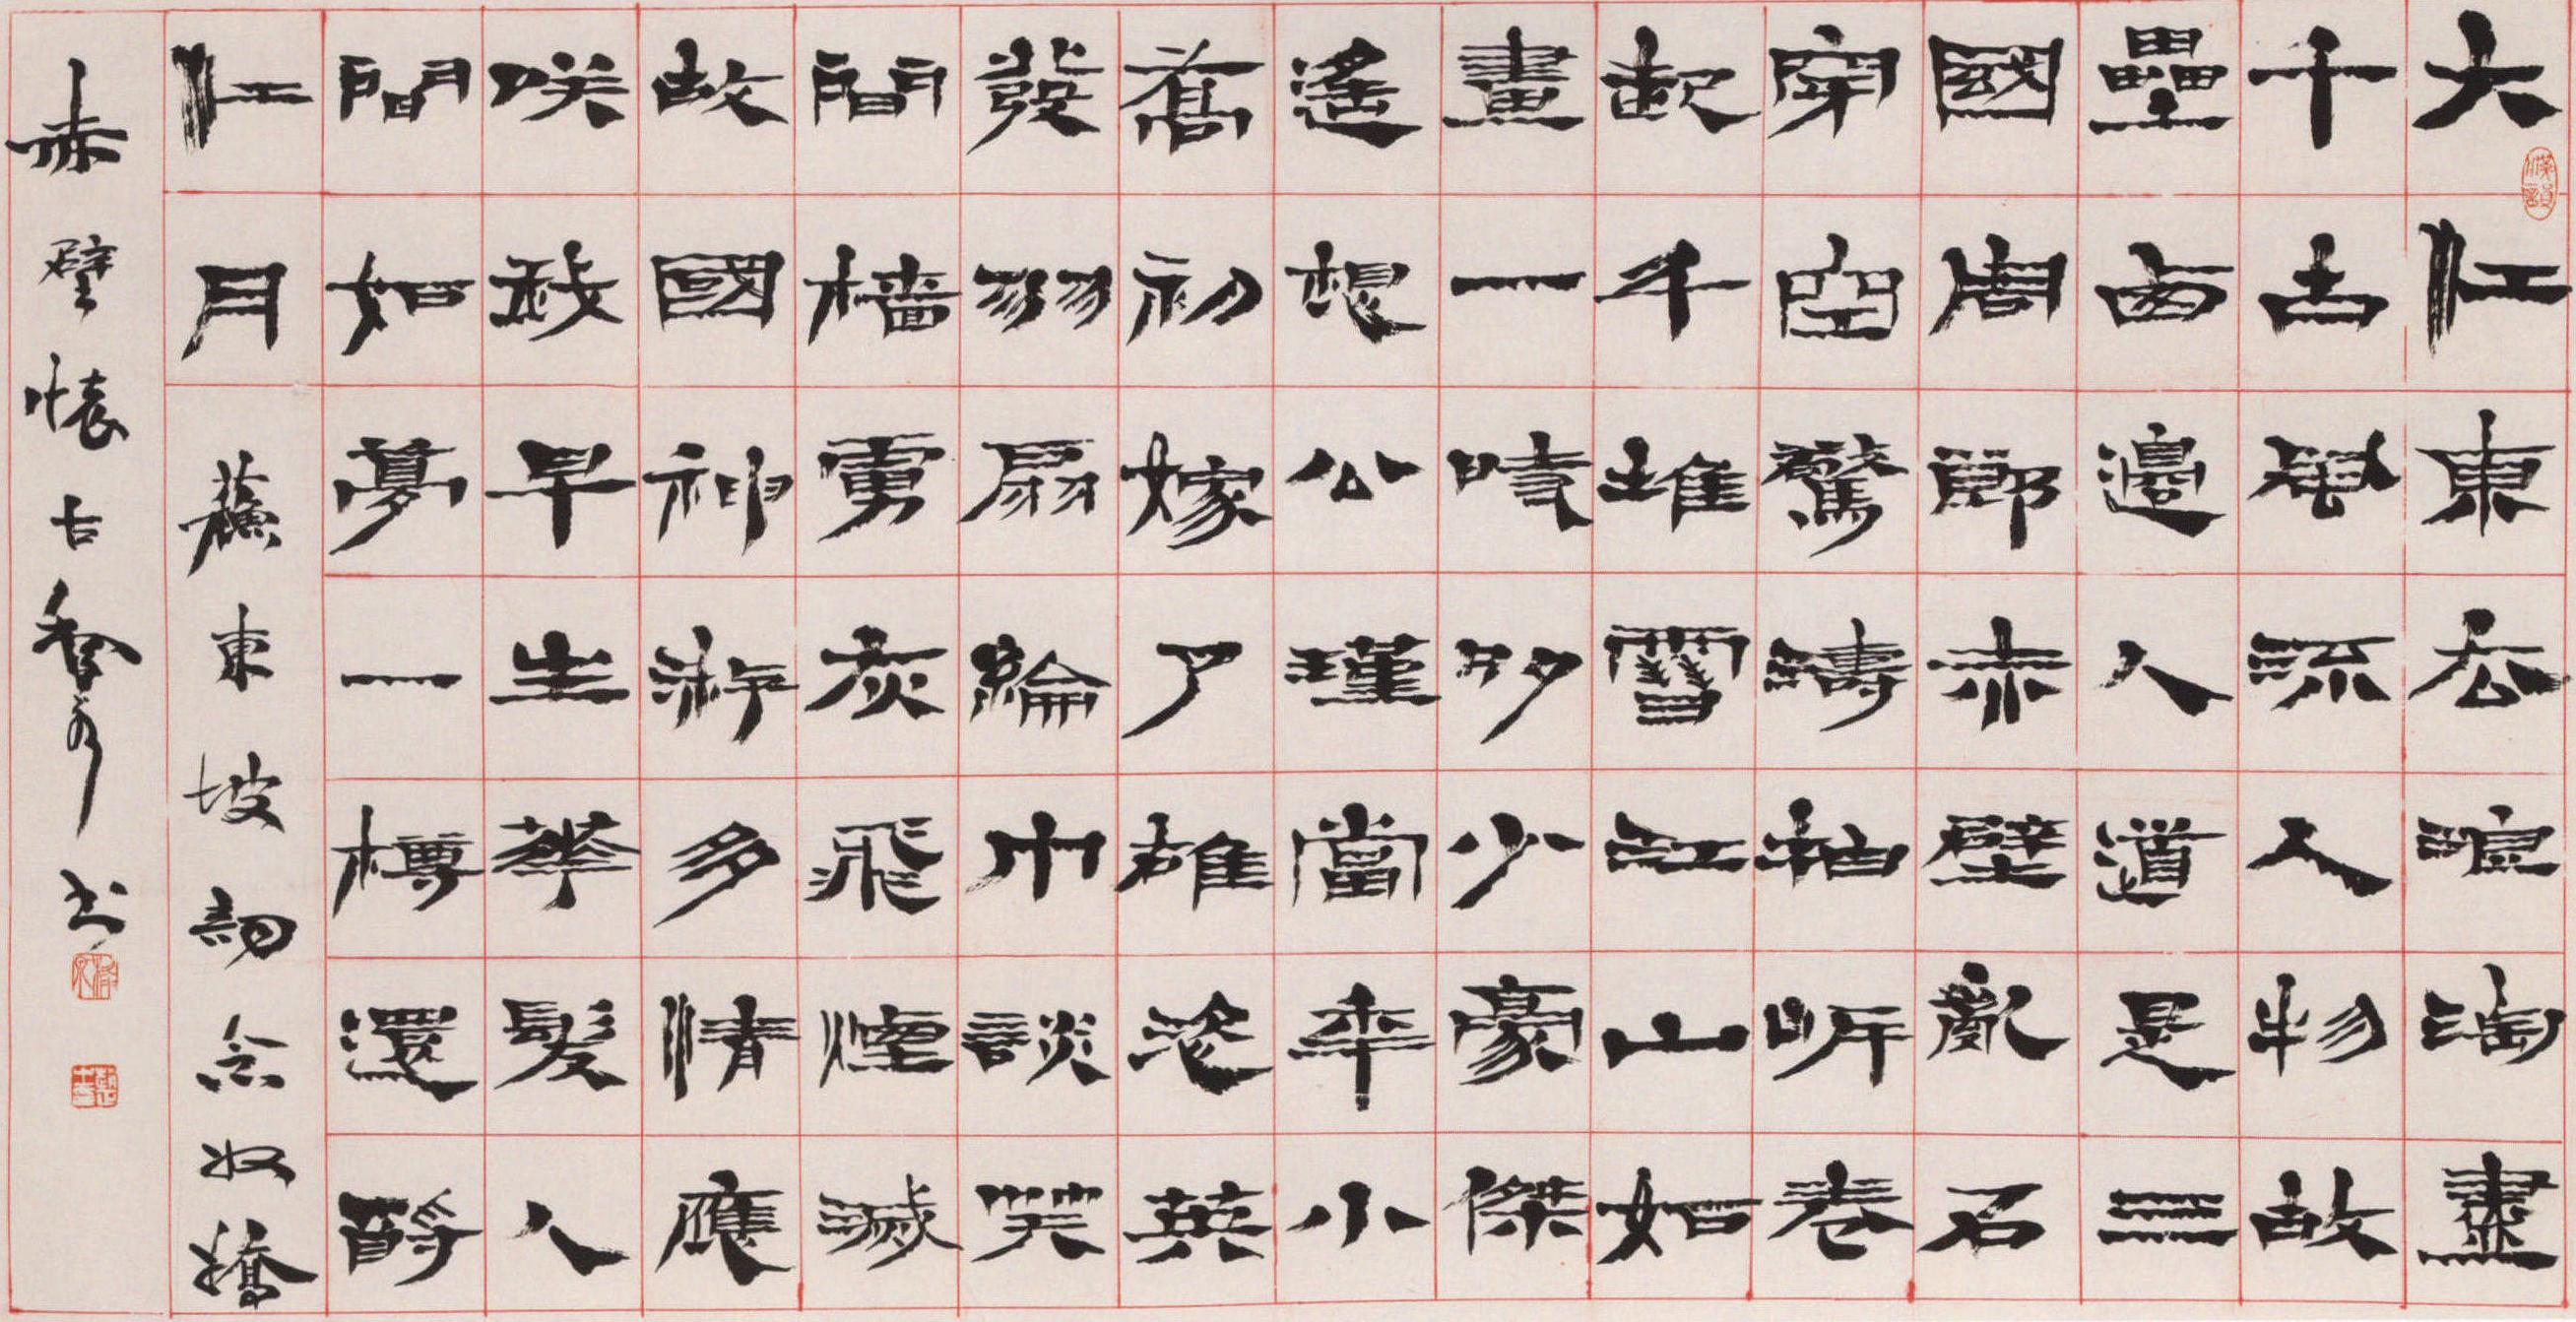 大江東去浪淘盡
千古風流人物故
壘西邊人道是三
國周郎赤壁亂石
穿空驚濤拍岸卷
起千堆雪江山如
畫一時多少豪傑
遙想公瑾當年小
喬初嫁了雄姿英
發羽扇綸巾談笑
間檣虜灰飛煙滅
故國神游多情應
咲我早生華髮人
間如夢一樽還酹
江月 蘇東坡詞念奴嬌
赤壁懷古 書